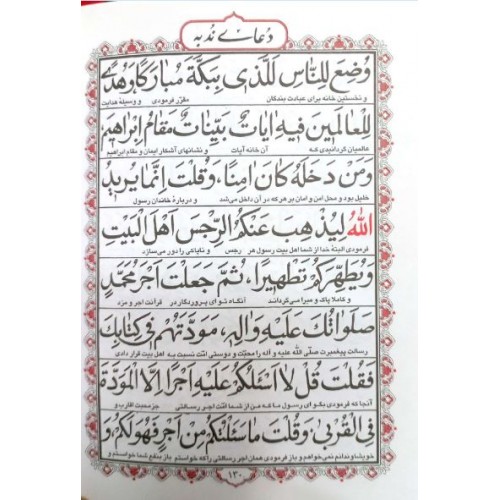 دعای ندبه
وُضِعَ لِلنَّاسِ لَلَّذِي بِبَكَّةَ مُبَارَكًا وَهُدًى
و نخستین خانه برای عبادت بندگان مقرّر فرمودی و وسیلهٔ هدایت
لِلْعَالَمِينَ فِيهِ اٰيَاتٌ بَيِّنَاتٌ مَقَامُ اِبْرَاهِيمَ
عالمیان گردانیدی که آن خانه آیات و نشانهای آشکار ایمان و مقام ابراهیم
وَمَنْ دَخَلَهُ كَانَ اٰمِنًا، وَقُلْتَ اِنَّمَا يُرِيدُ
خلیل بود و محل امن و امان بر هر که در آن داخل می‌شد و دربارهٔ خاندان رسول
اللّٰهُ لِيُذْهِبَ عَنْكُمُ الرِّجْسَ اَهْلَ الْبَيْتِ
فرمودی البتهٔ خدا از شما اهل بیت رسول هر رجس و ناپاکی را دور می‌سازد
وَيُطَهِّرَكُمْ تَطْهِيرًا، ثُمَّ جَعَلْتَ اَجْرَ مُحَمَّدٍ
و کاملا پاک و مبرا می‌گرداند آنگاه تو ای پروردگار در قرآنت اجر و مزد
صَلَوَاتُكَ عَلَيْهِ وَاٰلِهِ، مَوَدَّتَهُمْ فِي كِتَابِكَ
رسالت پیغمبرت صلّی الله علیه و آله را محبّت و دوستی امّت نسبت به اهل بیت قرار دادی
فَقُلْتَ قُلْ لَا اَسْئَلُكُمْ عَلَيْهِ اَجْرًا اِلَّا الْمَوَدَّةَ
آنجا که فرمودی بگو ای رسول ما که من از شما امّت اجر رسالتی جز محبت اقارب و
فِي الْقُرْبٰى، وَقُلْتَ مَا سَئَلْتُكُمْ مِنْ اَجْرٍ فَهُوَ لَكُمْ، وَ
خویشاوندانم نمی‌خواهم و باز فرمودی همان اجر رسالتی را که خواستم باز بنفع شما خواستم و
۱۳۰